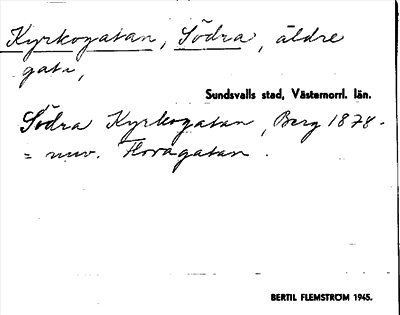 Kyrkogatan, Södra, äldre
gata,
Sundsvalls stad, Västernorrl. län.
Södra Kyrkogatan, Berg 1878.
= nuv. Floragatan.
BERTIL FLEMSTRÖM 1945.